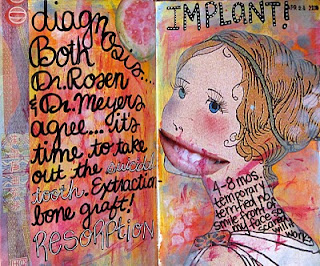 diagnosis...
Both
Dr. Rosen
& Dr. Meyers
agree... it's
time to take
out the
tooth. Extraction
bone graft!
RESORPTION
IMPLANT!
4-8 mos.
temporary
terrified no
smile front of
my face so
vacant
works